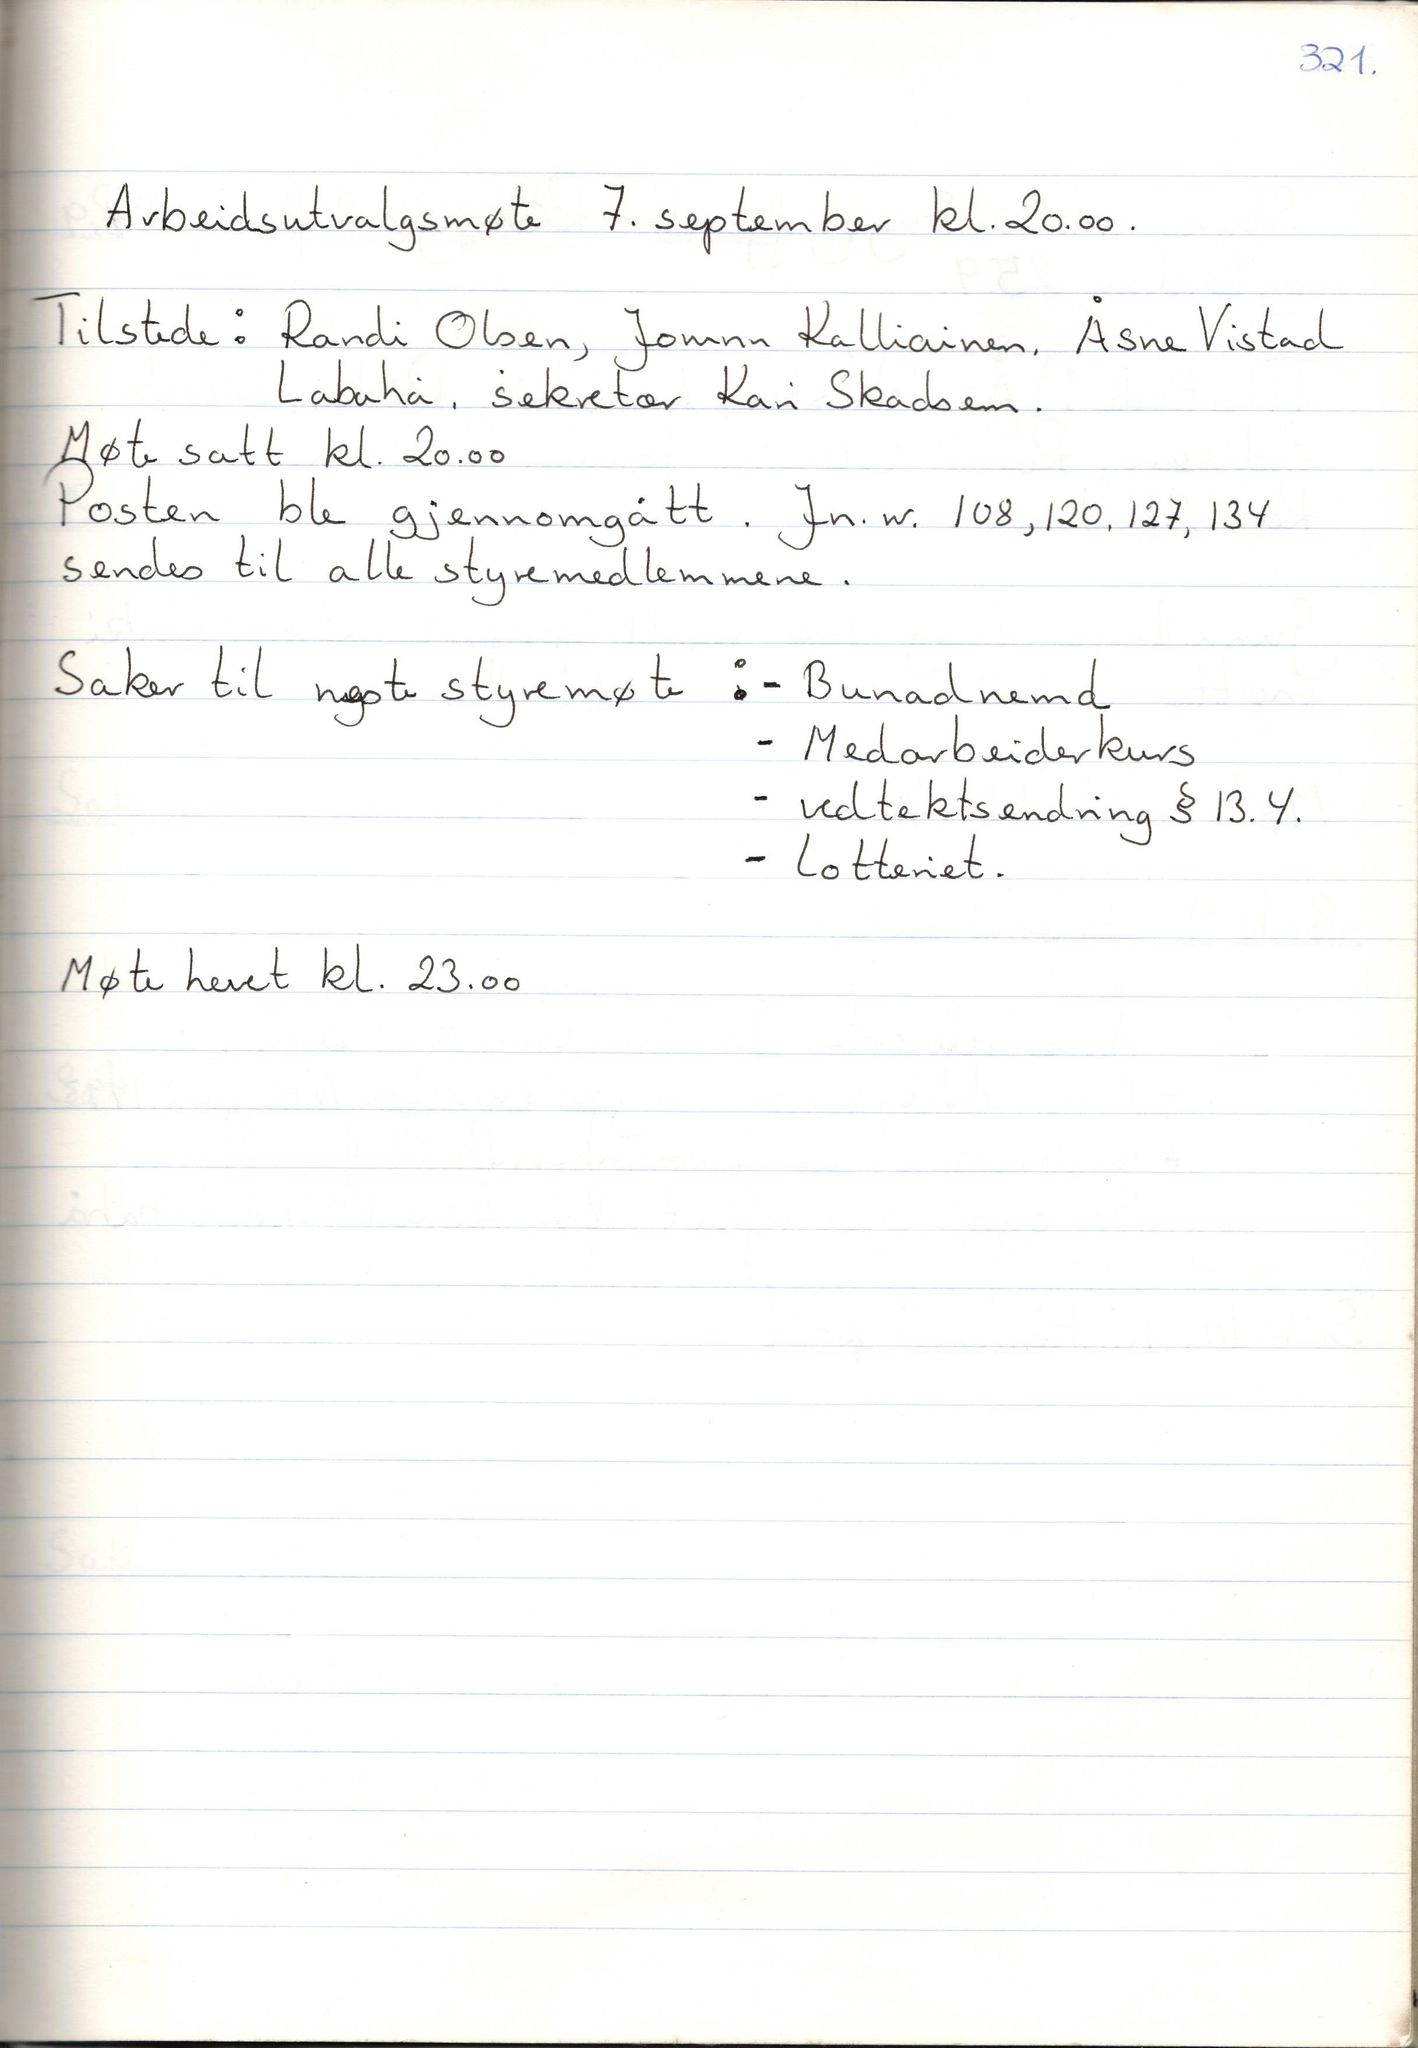 321.
Arbeidsutvalgsmøte 7. september kl. 20.00.
Tilstede: Randi Olsen, Jomnn Kalliainen, Åsne Vistad
Labahå, sekretær Kari Skadsem.
Møte satt kl. 20.00
Posten ble gjennomgått. Jn. nr. 108, 120, 127, 134
sendes til alle styremedlemmene.
Saker til neste styremøte : - Bunadnemd
- Medarbeiderkurs
- vedtektsendring § 13.4.
- Lotteriet.
Møte hevet kl. 23.00